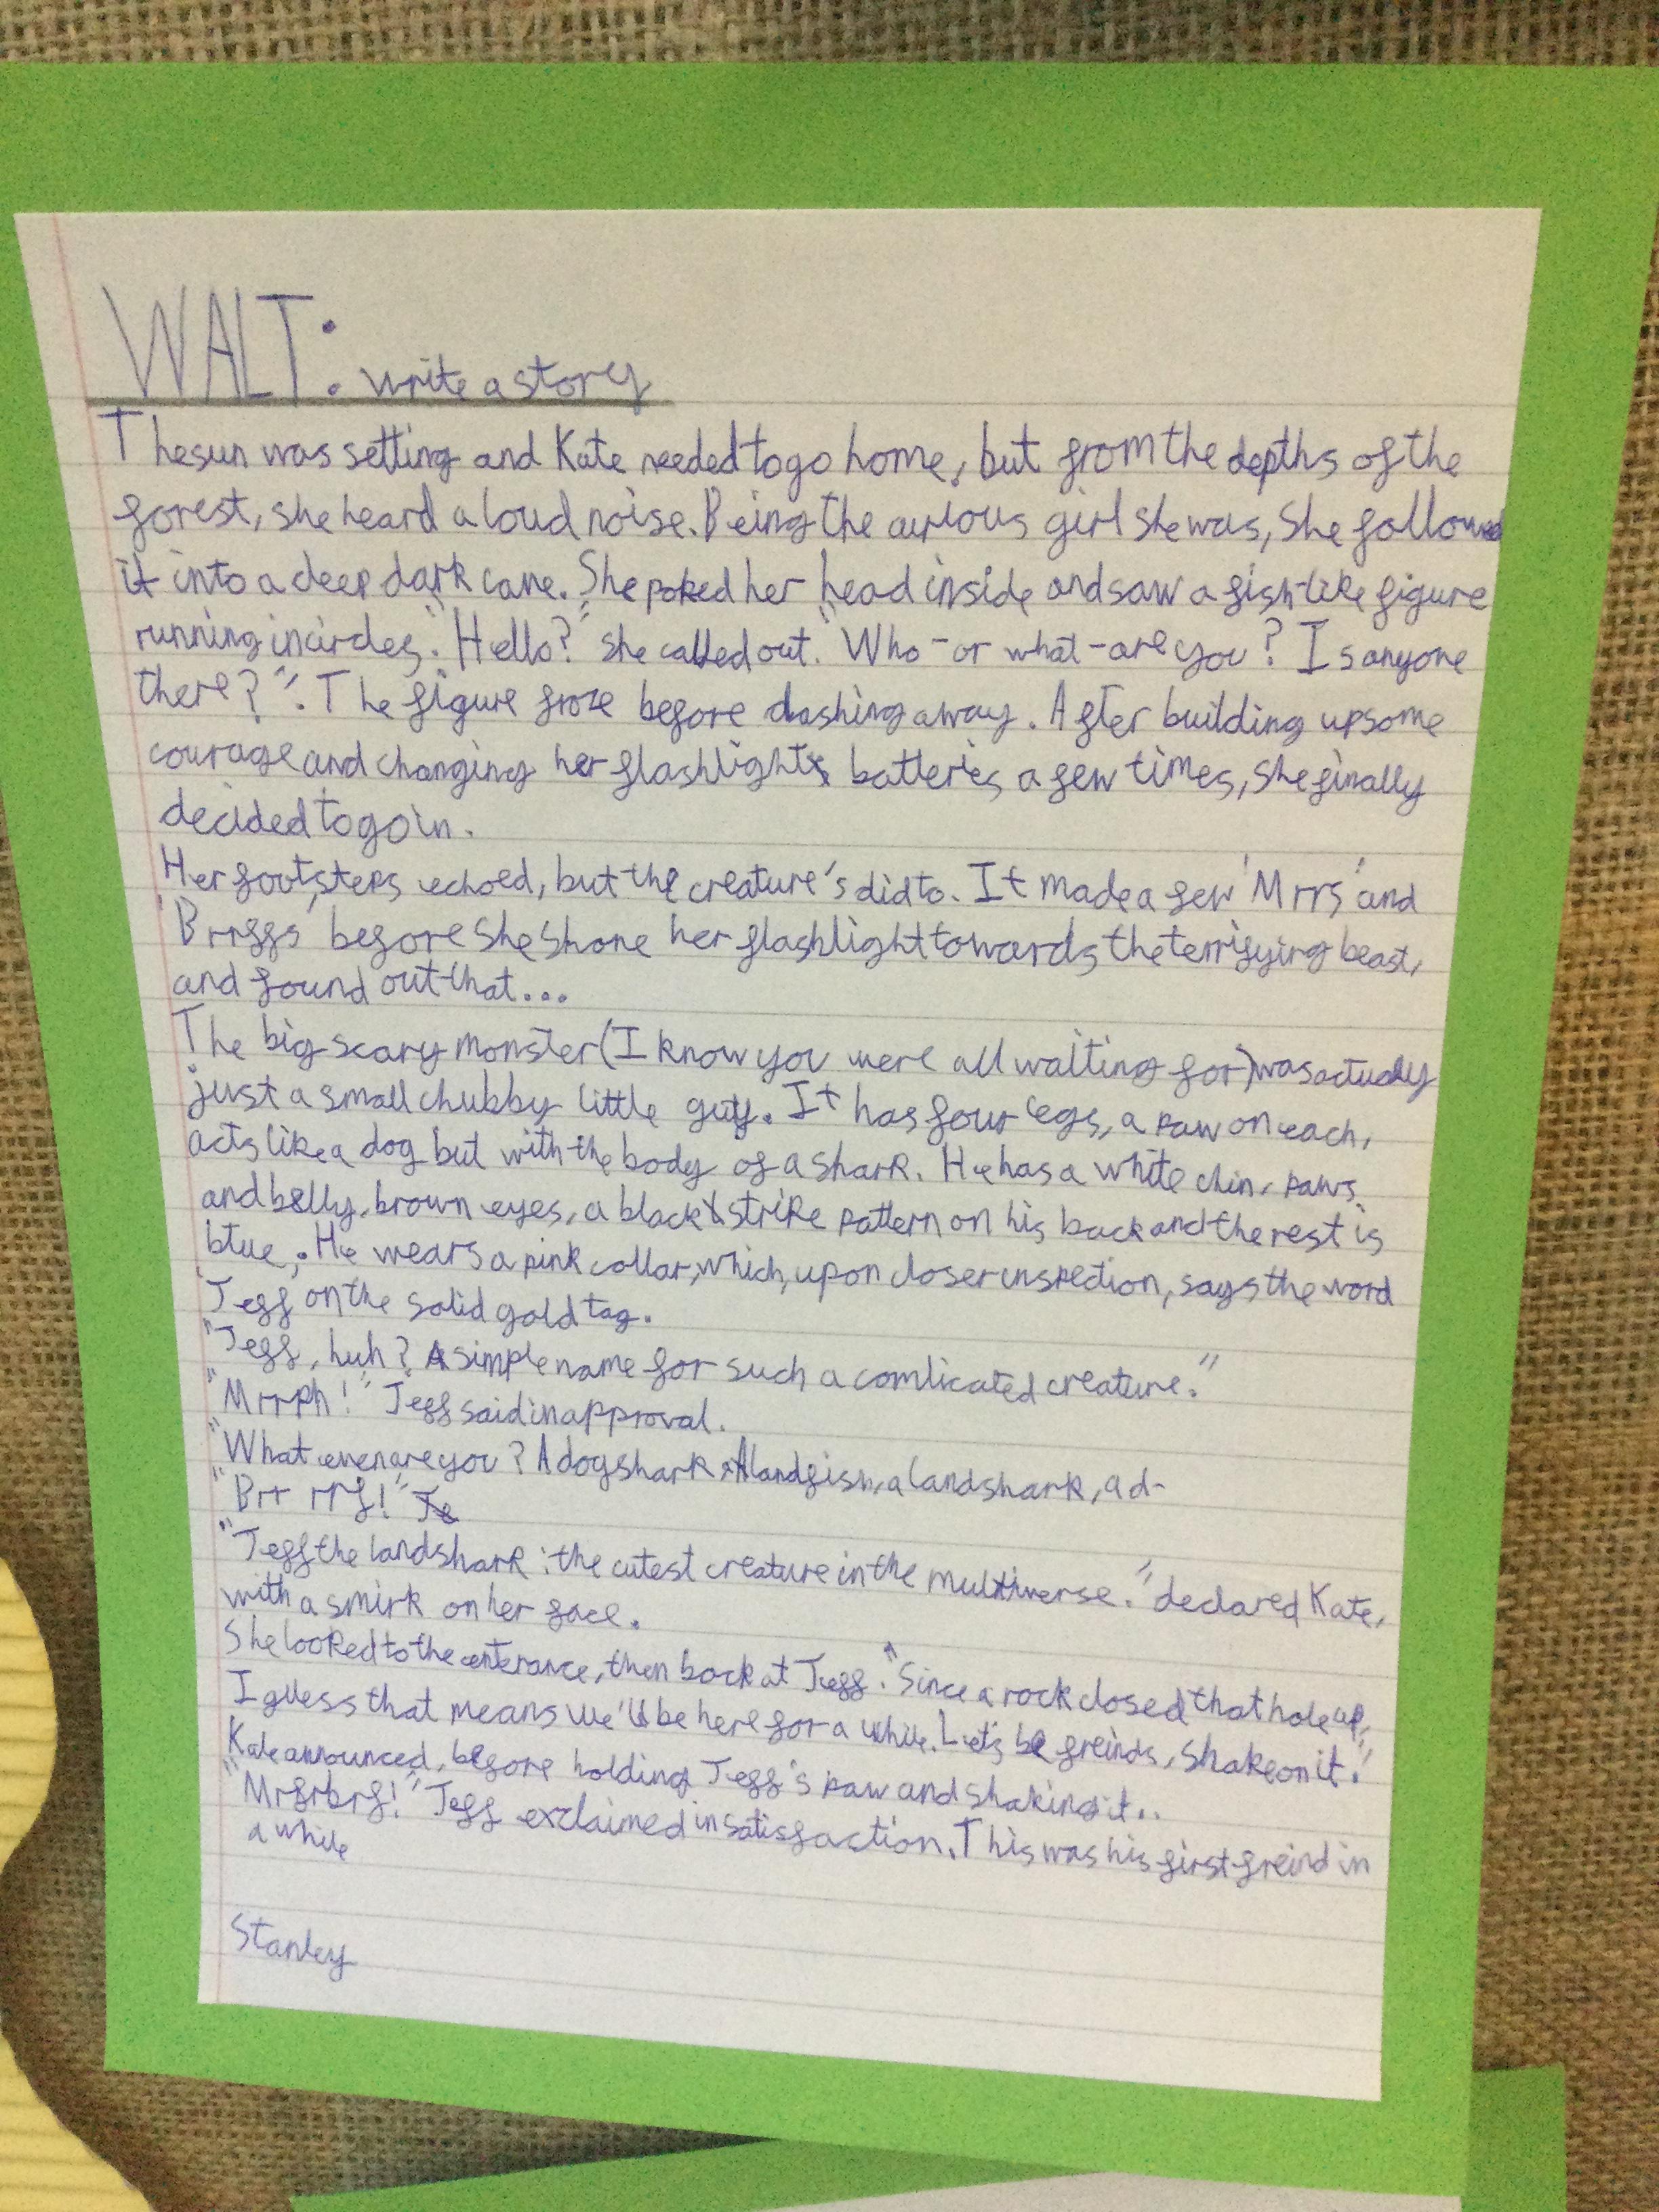 WALT: write a story
The sun was setting and Kate needed to go home, but from the depths of the
forest, she heard a loud noise. Being the curious girl she was, she followed
it into a deep dark cave. She poked her head inside and saw a fish-like figure
running in circles. "Hello?" she called out. "Who - or what - are you? Is anyone
there?". The figure froze before dashing away. After building up some
courage and changing her flashlights batteries a few times, she finally
decided to go in.
Her footsteps echoed, but the creature's did to. It made a few 'Mrrs' and
'Brrffs' before she shone her flashlight towards the terrifying beast,
and found out that...
The big scary monster (I know you were all waiting for) was actually
just a small chubby little guy. It has four legs, a paw on each,
acts like a dog but with the body of a shark. He has a white chin, paws
and belly, brown eyes, a black stripe pattern on his back and the rest is
blue. He wears a pink collar, which, upon closer inspection, says the word
Jeff on the solid gold tag.
"Jeff, huh? A simple name for such a comlicated creature."
"Mrrph!" Jeff said in approval.
"What even are you? A dog shark, A landfish, a landshark, a d-
"Brr rrf!" Je
"Jeff the landshark: the cutest creature in the multiverse." declared Kate,
with a smirk on her face.
She looked to the enterance, then back at Jeff. "Since a rock closed that hole up,
I guess that means we'll be here for a while. Let's be freinds, shake on it."
Kate announced, before holding Jeff's paw and shaking it..
"Mrfrbrf!" Jeff exclaimed in satisfaction. This was his first freind in
a while
Stanley